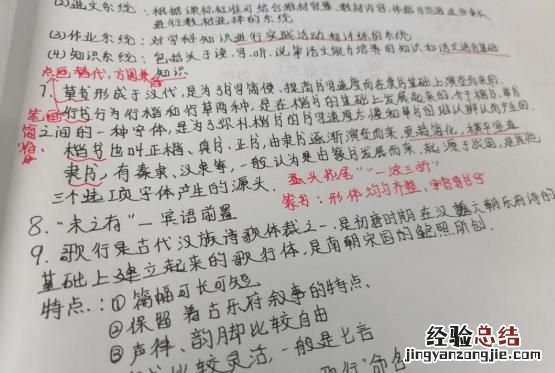 (2)选文系统：根据课标标准可结合教材容量、教材内容、体裁
进行教材选择的系统
(3)作业系统：对学科知识进行实践活动和训练的系统
(4)知识系统：包括关于读、写、听、说等语文能力培养的知识和语文语言基础
知识
7. 草书形成于汉代，是为了书写简便、提高书写速度而在隶书基础上演变而来的。
行书分为行楷和行草两种，是在楷书的基础上发展起来的，介于楷书、草书
之间的一种字体，是为了弥补楷书的书写速度太慢和草书的难以辨认而产生的。
楷书也叫正楷、真书、正书，由隶书逐渐演变而来，更趋简化，横平竖直
隶书，有秦隶、汉隶等，一般认为是由篆书发展而来，起源于战国，是其他
三个 字体产生的源头.
蚕头燕尾 "一波三折"
篆书：形体均匀齐整
8. "未之有"—宾语前置
9. 歌行是古代汉族诗歌体裁之一，是初唐时期在汉魏六朝乐府诗的
基础上建立起来的歌行体，是南朝宋国的鲍照所创.
特点：① 篇幅可长可短
② 保留着古乐府叙事的特点
③ 声律、韵脚比较自由
比较灵活，一般是七言